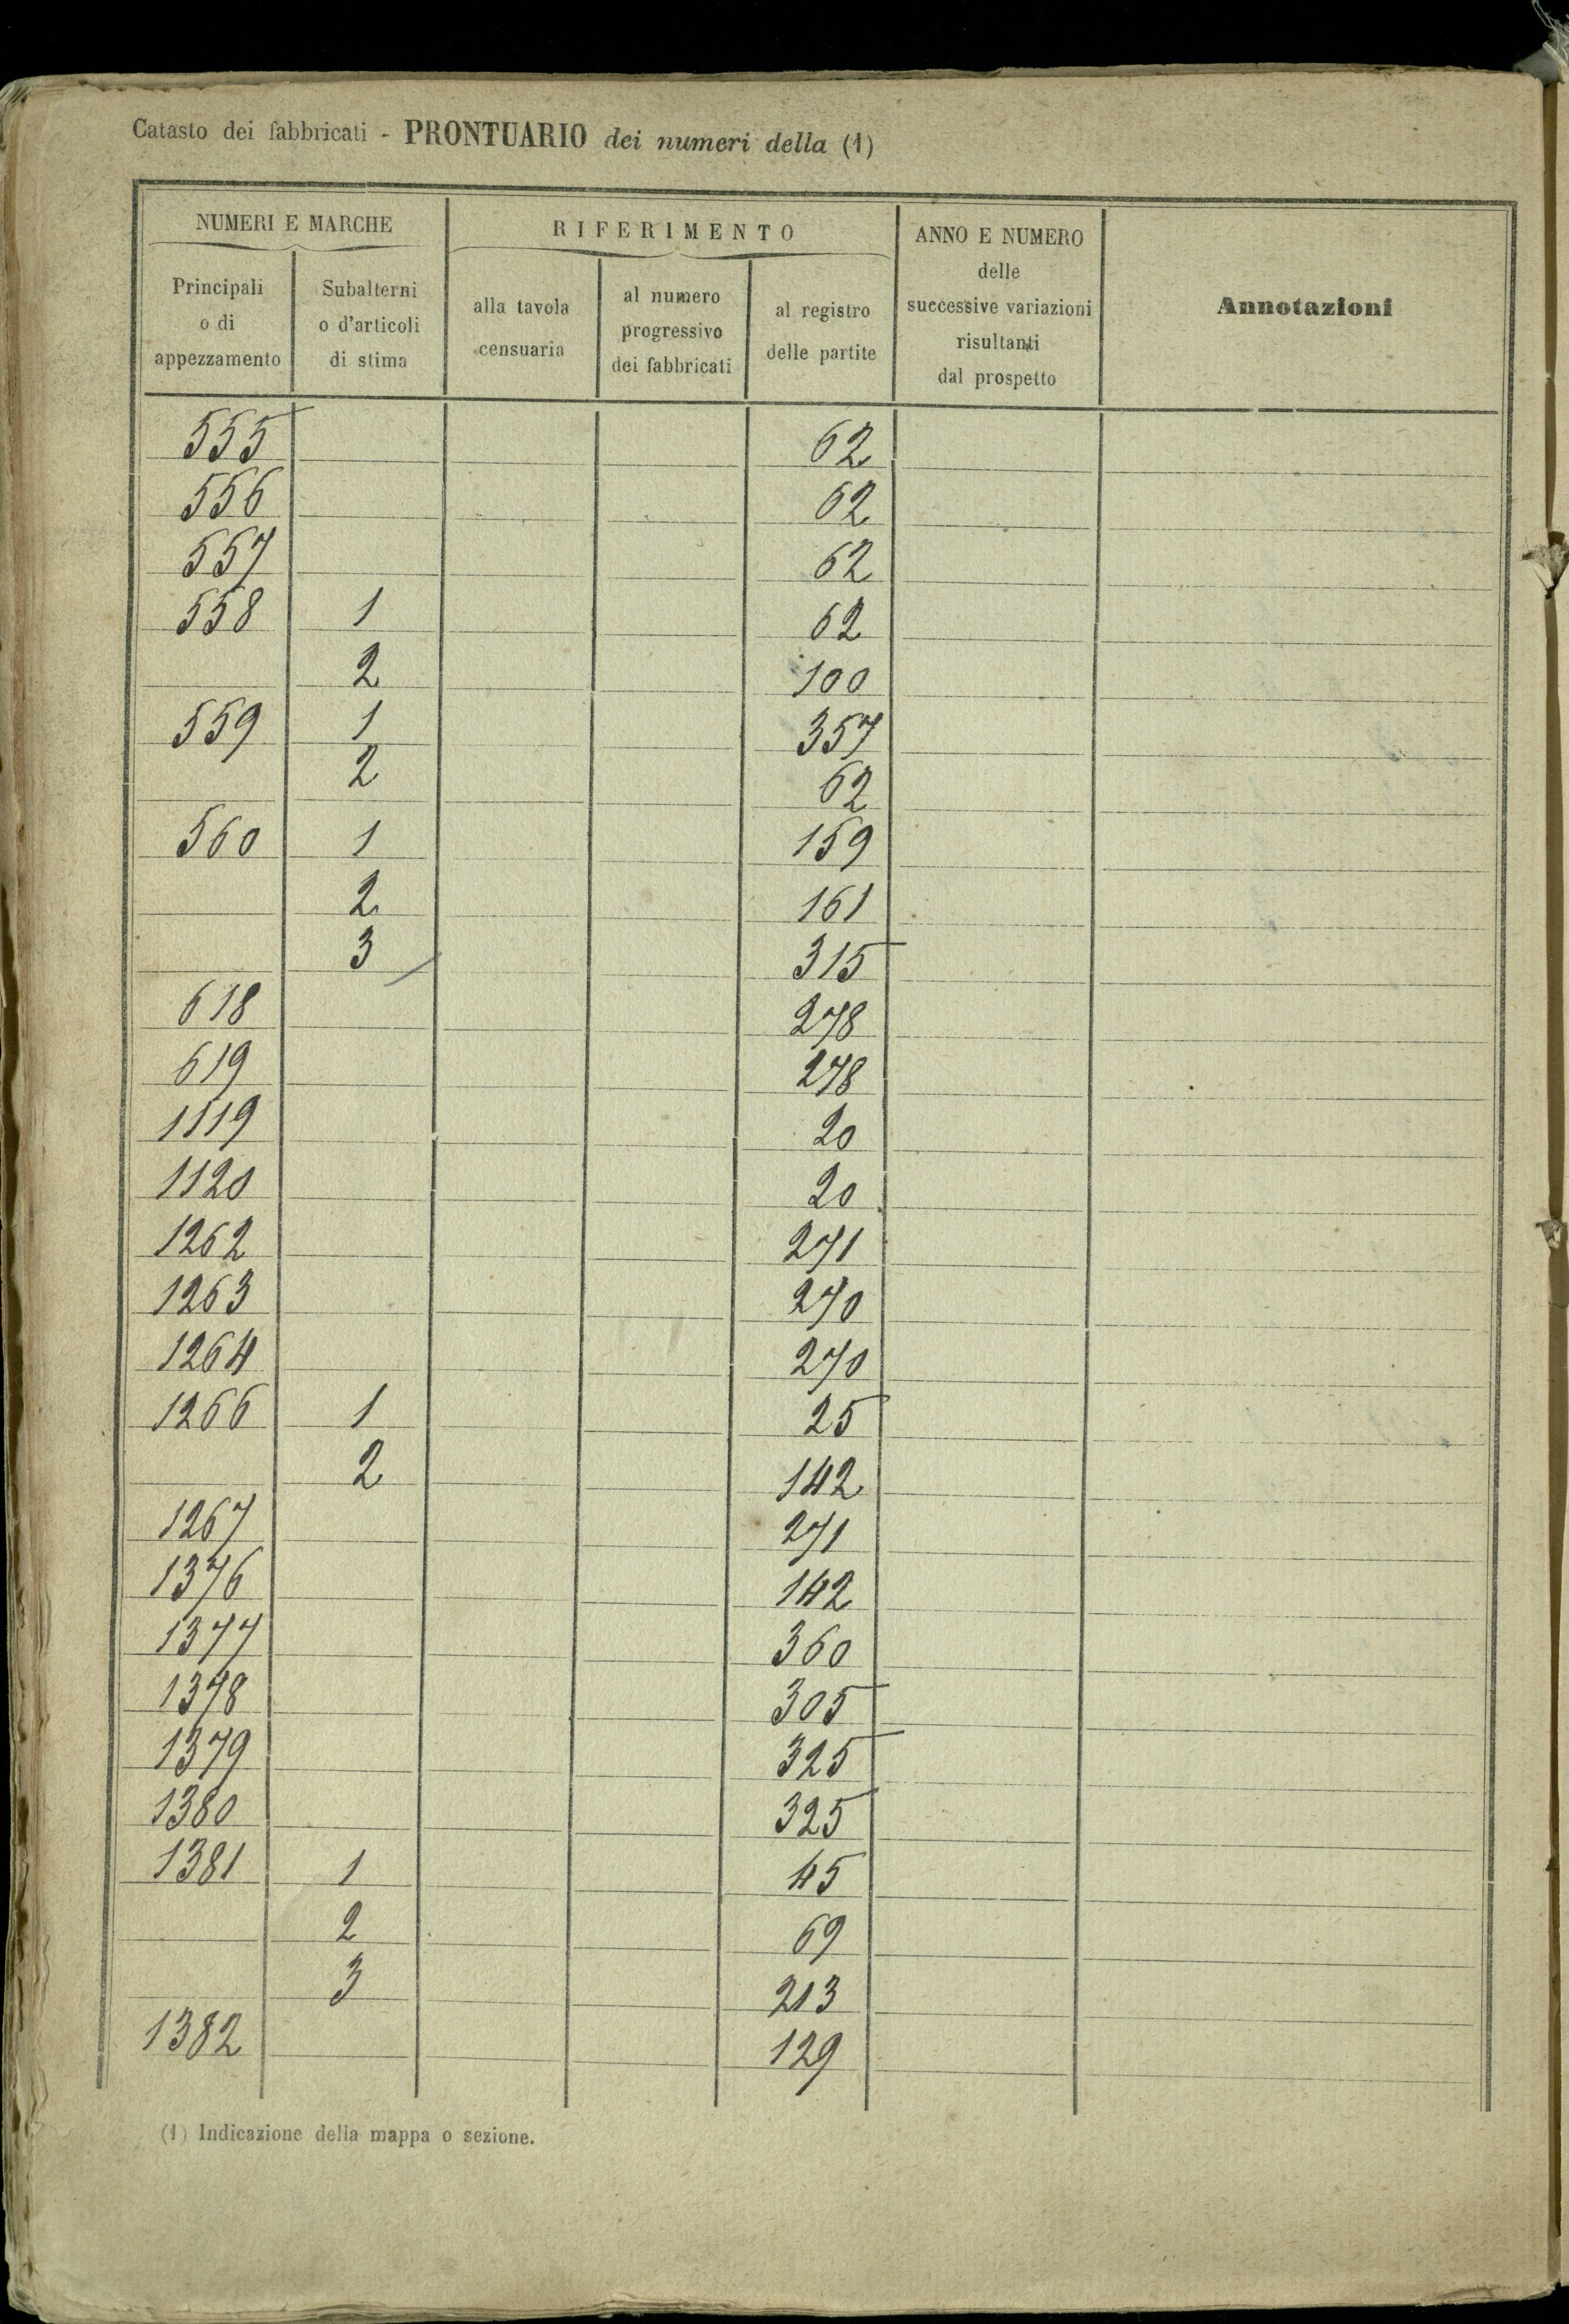 Catasto dei fabbricati - PRONTUARIO dei numeri della (1)
NUMERI E MARCHE
RIFERIMENTO
ANNO E NUMERO
delle
successive variazioni
risultanti
dal prospetto
Annotazioni
Principali
o di
appezzamento
Subalterni
o d'articoli
di stima
alla tavola
censuaria
al numero
progressivo
dei fabbricati
al registro
delle partite
555 62
556 62
557 62
558 1 62
2 100
559 1 357
2 62
560 1 159
2 161
3 315
618 278
619 278
1119 20
1120 20
1262 271
1263 270
1264 270
1266 1 25
2 142
1267 271
1376 142
1377 360
1378 305
1379 325
1380 325
1381 1 45
2 69
3 213
1382 129
(1) Indicazione della mappa o sezione.